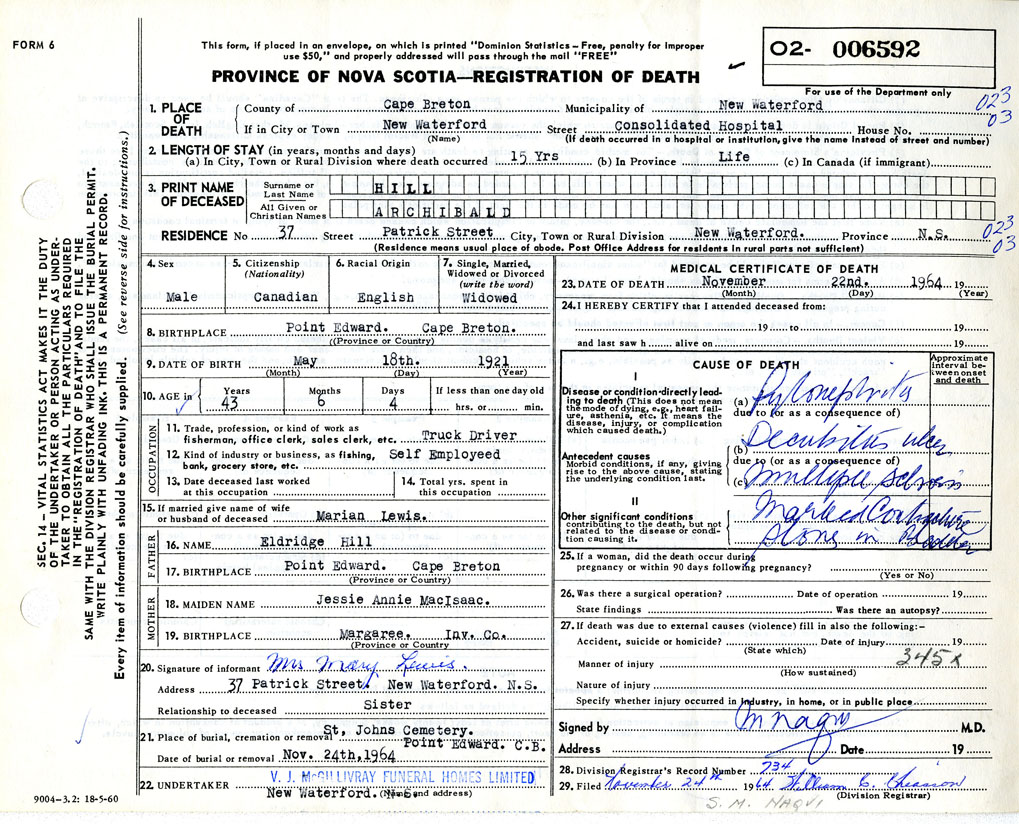 FORM 6
This form, if placed in an envelope, on which is printed "Dominion Statistics – Free, penalty for improper
use $50," and properly addressed will pass through the mail "FREE"
PROVINCE OF NOVA SCOTIA—REGISTRATION OF DEATH
O2- 006592
For use of the Department only
023
03
1. PLACE OF DEATH
County of Cape Breton Municipality of New Waterford
If in City or Town New Waterford Street Consolidated Hospital House No.
(Name) (If death occurred in a hospital or institution, give the name instead of street and number)
2. LENGTH OF STAY (in years, months and days)
(a) In City, Town or Rural Division where death occurred 15 Yrs (b) In Province Life (c) In Canada (if immigrant)
3. PRINT NAME OF DECEASED
Surname or Last Name HILL
All Given or Christian Names ARCHIBALD
RESIDENCE No 37 Street Patrick Street City, Town or Rural Division New Waterford. Province N.S.
(Residence means usual place of abode. Post Office Address for residents in rural parts not sufficient)
023
03
4. Sex
Male
5. Citizenship
(Nationality)
Canadian
6. Racial Origin
English
7. Single, Married,
Widowed or Divorced
(write the word)
Widowed
8. BIRTHPLACE Point Edward. Cape Breton.
((Province or Country)
9. DATE OF BIRTH May 18th. 1921
(Month) (Day) (Year)
10. AGE in
Years Months Days If less than one day old
43 6 4 hrs. or min.
OCCUPATION
11. Trade, profession, or kind of work as
fisherman, office clerk, sales clerk, etc. Truck Driver
12. Kind of industry or business, as fishing, Self Employeed
bank, grocery store, etc.
13. Date deceased last worked
at this occupation
14. Total yrs. spent in
this occupation
15. If married give name of wife
or husband of deceased Marian Lewis.
FATHER
16. NAME Eldridge Hill
17. BIRTHPLACE Point Edward. Cape Breton
(Province or Country)
MOTHER
18. MAIDEN NAME Jessie Annie MacIsaac.
19. BIRTHPLACE Margaree. Inv. Co.
(Province or Country
20. Signature of informant Mrs Mary Lewis.
Address 37 Patrick Street. New Waterford. N.S.
Relationship to deceased Sister
21. Place of burial, cremation or removal St, Johns Cemetery.
Point Edward. C.B.
Date of burial or removal Nov. 24th, 1964
22. UNDERTAKER V. J. McGILLIVRAY FUNERAL HOMES LIMITED
New Waterford. N.S.
(Name and address)
9004-3.2: 18-5-60
MEDICAL CERTIFICATE OF DEATH
23. DATE OF DEATH November 22nd. 1964 19
(Month) (Day) (Year)
24. I HEREBY CERTIFY that I attended deceased from:
19 to 19
and last saw h alive on 19
CAUSE OF DEATH
Approximate
interval be-
tween onset
and death
I
Disease or condition directly lead-
ing to death (This does not mean
the mode of dying, e.g., heart fail-
ure, asthenia, etc. It means the
disease, injury, or complication
which caused death.)
(a) Pyelonephritis
due to (or as a consequence of)
(b) Decubitus ulcer
Antecedent causes
Morbid conditions, if any, giving
rise to the above cause, stating
the underlying condition last.
due to (or as a consequence of)
(c) Multiple Sclerosis
II
Other significant conditions
contributing to the death, but not
related to the disease or condi-
tion causing it.
Marked Contracture
Stone in Bladder
25. If a woman, did the death occur during
pregnancy or within 90 days following pregnancy?
(Yes or No)
26. Was there a surgical operation? Date of operation 19
State findings Was there an autopsy?
27. If death was due to external causes (violence) fill in also the following:-
Accident, suicide or homicide? Date of injury 19
(State which)
345x
Manner of injury
(How sustained)
Nature of injury
Specify whether injury occurred in industry, in home, or in public place
Signed by M Naqvi M.D.
Address Date 19
28. Division Registrar's Record Number 734
29. Filed November 24th 1964 William C. Chiasson
(Division Registrar)
S. M. NAQVI
SEC. 14 – VITAL STATISTICS ACT MAKES IT THE DUTY
OF THE UNDERTAKER OR PERSON ACTING AS UNDER-
TAKER TO OBTAIN ALL THE PARTICULARS REQUIRED
IN THE "REGISTRATION OF DEATH" AND TO FILE THE
SAME WITH THE DIVISION REGISTRAR WHO SHALL ISSUE THE BURIAL PERMIT.
WRITE PLAINLY WITH UNFADING INK. THIS IS A PERMANENT RECORD.
Every item of information should be carefully supplied. (See reverse side for instructions.)